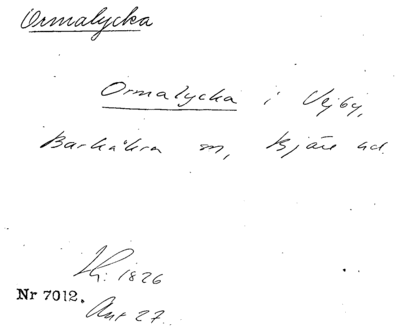 Ormalycka
Ormalycka i Vejby,
Barkåkra sn, Bjäre hd.
1826
Nr 7012.
Ant 27.